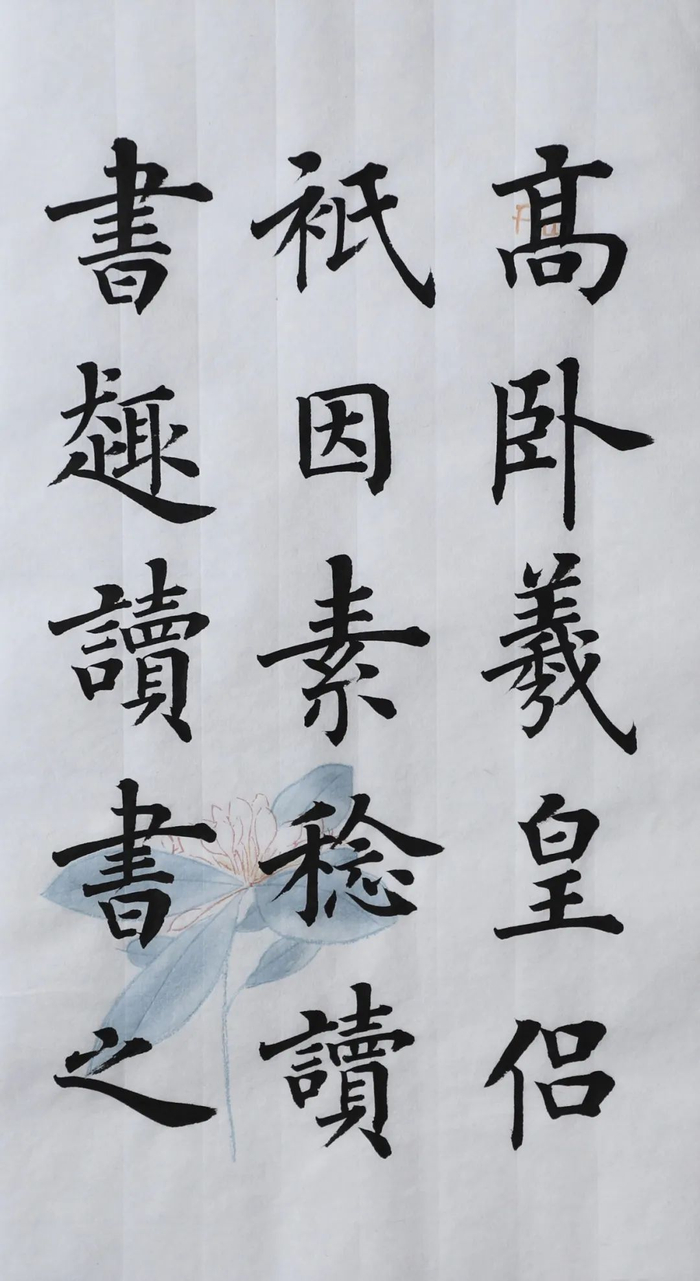 髙卧羲皇侣
衹因素稔讀
書趣讀書之